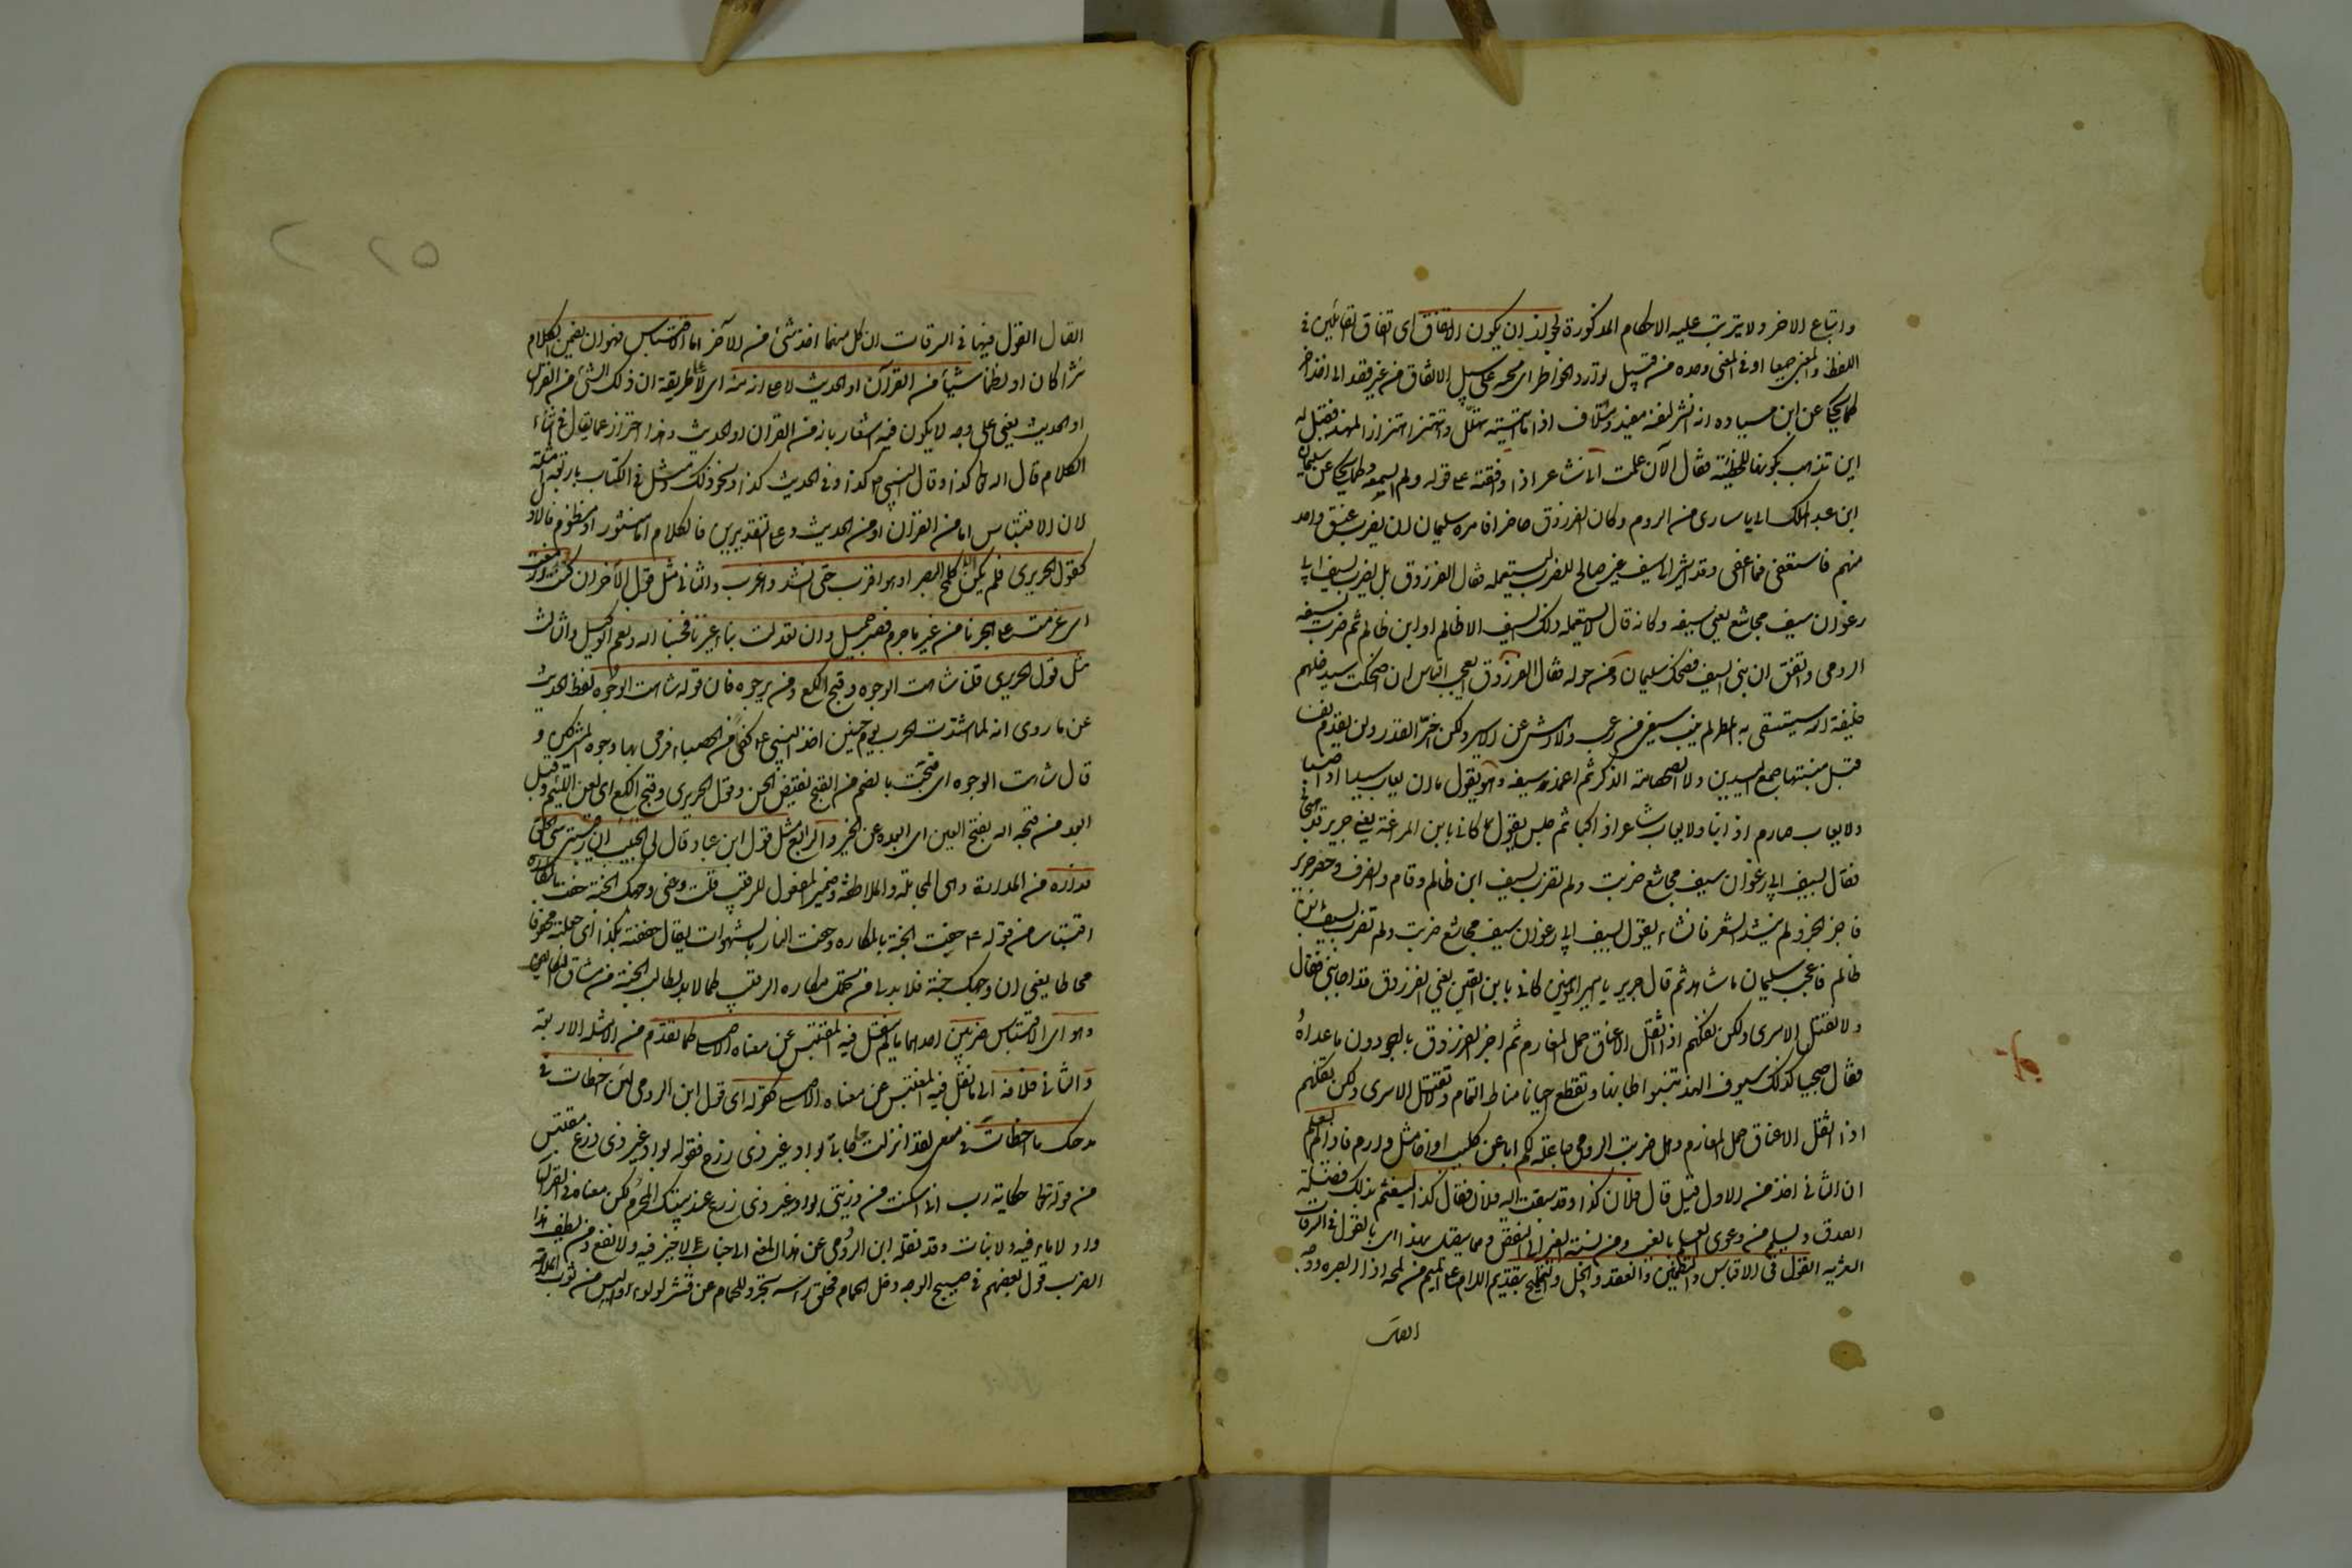 واتباع الاخر ولا يترتب عليه الاحكام المذكورة لجواز ان يكون الاتفاق اى اتفاق القائلين فى
اللفظ والمعنى جميعا او فى المعنى وحده من قبيل توارد الخواطر اى مجيه على سبيل الاتفاق من غير قصد الى اخذ
كما يحكى عن ابن ميادة انه انشد لنفسه مفيد ومتلاف اذا ما اتيته تهلل واهتز اهتزاز المهند فقيل له
اين تذهب بك هذا للحطيئة فقال الآن علمت انى شاعر اذا وافقته على قوله ولم اسمعه وكما يحكى عن سليمان
ابن عبد الملك اتى باسارى من الروم وكان الفرزدق حاضرا فامره سليمان ان يضرب عنق واحد
منهم فاستعفى فما اعفى وقد اشير الى سيف غير صالح للضرب ليستعمله فقال الفرزدق بل اضرب بسيف ابى
رغوان سيف مجاشع يعنى سيفه وكانه قال لا يستعمل ذلك السيف الا ظالم او ابن ظالم ثم ضرب بسيفه
الرومى واتفق ان نبى السيف فضحك سليمان ومن حوله فقال الفرزدق ايعجب الناس ان اضحكت سيدهم
خليفة الله يستسقى به المطر لم ينب سيفى من رعب ولا دهش عن الاسير ولكن اخر القدر ولن يقدم نفسا
قبل ميتتها جمع اليدين ولا الصمصامة الذكر ثم اغمد سيفه وهو يقول ما ان يعاب سيد اذا صبا
ولا يعاب صارم اذا نبا ولا يعاب شاعر اذا كبا ثم جلس يقول كانى بابن المراغة يعنى جرير قد هجانى
فقال بسيف ابى رغوان سيف مجاشع ضربت ولم تضرب بسيف ابن ظالم وقام وانصرف وحضر جرير
فاخبر الخبر ولم ينشد الشعر فانشاء يقول بسيف ابى رغوان سيف مجاشع ضربت ولم تضرب بسيف ابن
ظالم فاعجب سليمان ما شاهد ثم قال جرير يا امير المؤمنين كانى بابن القين يعنى الفرزدق قد اجابنى فقال
ولا نقتل الاسرى ولكن نفكهم اذا اثقل الاعناق حمل المغارم ثم اخبر الفرزدق بالهجو دون ما عداه
فقال مجيبا كذلك سيوف الهند تنبوا ظباتها وتقطع احيانا مناط التمائم ولا نقتل الاسرى ولكن نفكهم
اذا اثقل الاعناق حمل المغارم وهل ضربت الرومى جاعلة لكم ابا عن كليب او اخا مثل دارم فاذا لم يعلم
ان الثانى اخذ من الاول قيل قال فلان كذا وقد سبقه اليه فلان فقال كذا ليغتنم بذلك فضيلة
الصدق ويسلم من دعوى العلم بالغيب ومن نسبة الغير الى النقص ومما يتصل بهذا اى بالقول فى السرقات
الشعرية القول فى الاقتباس والتضمين والعقد والحل والتلميح بتقديم اللام على الميم من لمحه اذا ابصره ووجه
اتصال
اتصال القول فيها فى السرقات ان كل منهما اخذ شئ من الآخر اما الاقتباس فهو ان يضمن الكلام
نثرا كان او نظما شيأ من القرآن او الحديث لا على انه منه اى لا على طريقة ان ذلك الشئ من القرآن
او الحديث يعنى على وجه لا يكون فيه اشعار بانه من القران او الحديث وهذا احتراز عما يقال فى اثناء
الكلام قال الله تعالى كذا وقال النبى م كذا وفى الحديث كذا ونحو ذلك ومثل فى الكتاب باربعة امثلة
لان الاقتباس اما من القران او من الحديث وعلى التقديرين فالكلام اما منثور او منظوم فالاول
كقول الحريرى فلم يكن الا كلمح البصر او هو اقرب حتى انشد واغرب والثانى مثل قول الآخر ان كنت ازمعت
اى عزمت على هجرنا من غير ما جرم فصبر جميل وان تبدلت بنا غيرنا فحسبنا الله ونعم الوكيل والثالث
مثل قول الحريرى قلنا شاهت الوجوه وقبح اللكع ومن يرجوه فان قوله شاهت الوجوه لفظ الحديث
عن ما روى انه لما اشتدت الحرب يوم حنين اخذ النبى ع كفا من الحصباء فرمى بها وجوه المشركين و
قال شاهت الوجوه اى قبحت بالضم من القبح نقيض الحسن وقول الحريرى وقبح اللكع اى لعن اللئيم وقيل
ابعد من قبحه الله بفتح العين اى ابعده عن الخير والرابع مثل قول ابن عباد قال لى الحبيب ان رقيبى سئ الخلق
فداره من المداراة وهى المجاملة والملاطفة وضمير المفعول للرقيب قلت دعنى وجهك الجنة حفت بالمكاره
اقتباس من قوله ع حفت الجنة بالمكاره وحفت النار بالشهوات يقال حففته بكذا اى جعلته محفوفا
محاطا يعنى ان وجهك جنة فلا بد لى من تحمل مكاره الرقيب كما لا بد لطالب الجنة من مشاق التكاليف
وهو اى الاقتباس ضربين احدهما ما لم ينقل فيه المقتبس عن معناه الاصلى كما تقدم من الامثلة الاربعة
والثانى خلافه اى ما نقل فيه المقتبس عن معناه الاصلى كقوله اى قول ابن الرومى لئن اخطات فى
مدحك ما اخطات فى منعى لقد انزلت حاجاتى بواد غير ذى زرع فقوله بواد غير ذى زرع مقتبس
من قوله تعالى حكاية رب انى اسكنت من ذريتى بواد غير ذى زرع عند بيتك المحرم لكن معناه فى القرآن
واد لا ماء فيه ولا نبات وقد نقله ابن الرومى عن هذا المعنى الى جناب لا خير فيه ولا نفع ومن لطيف هذا
الضرب قول بعضهم فى صبيح الوجه دخل الحمام فحلق راسه تجرد للحمام عن قشر لولوء والبس من ثوب الملاحة